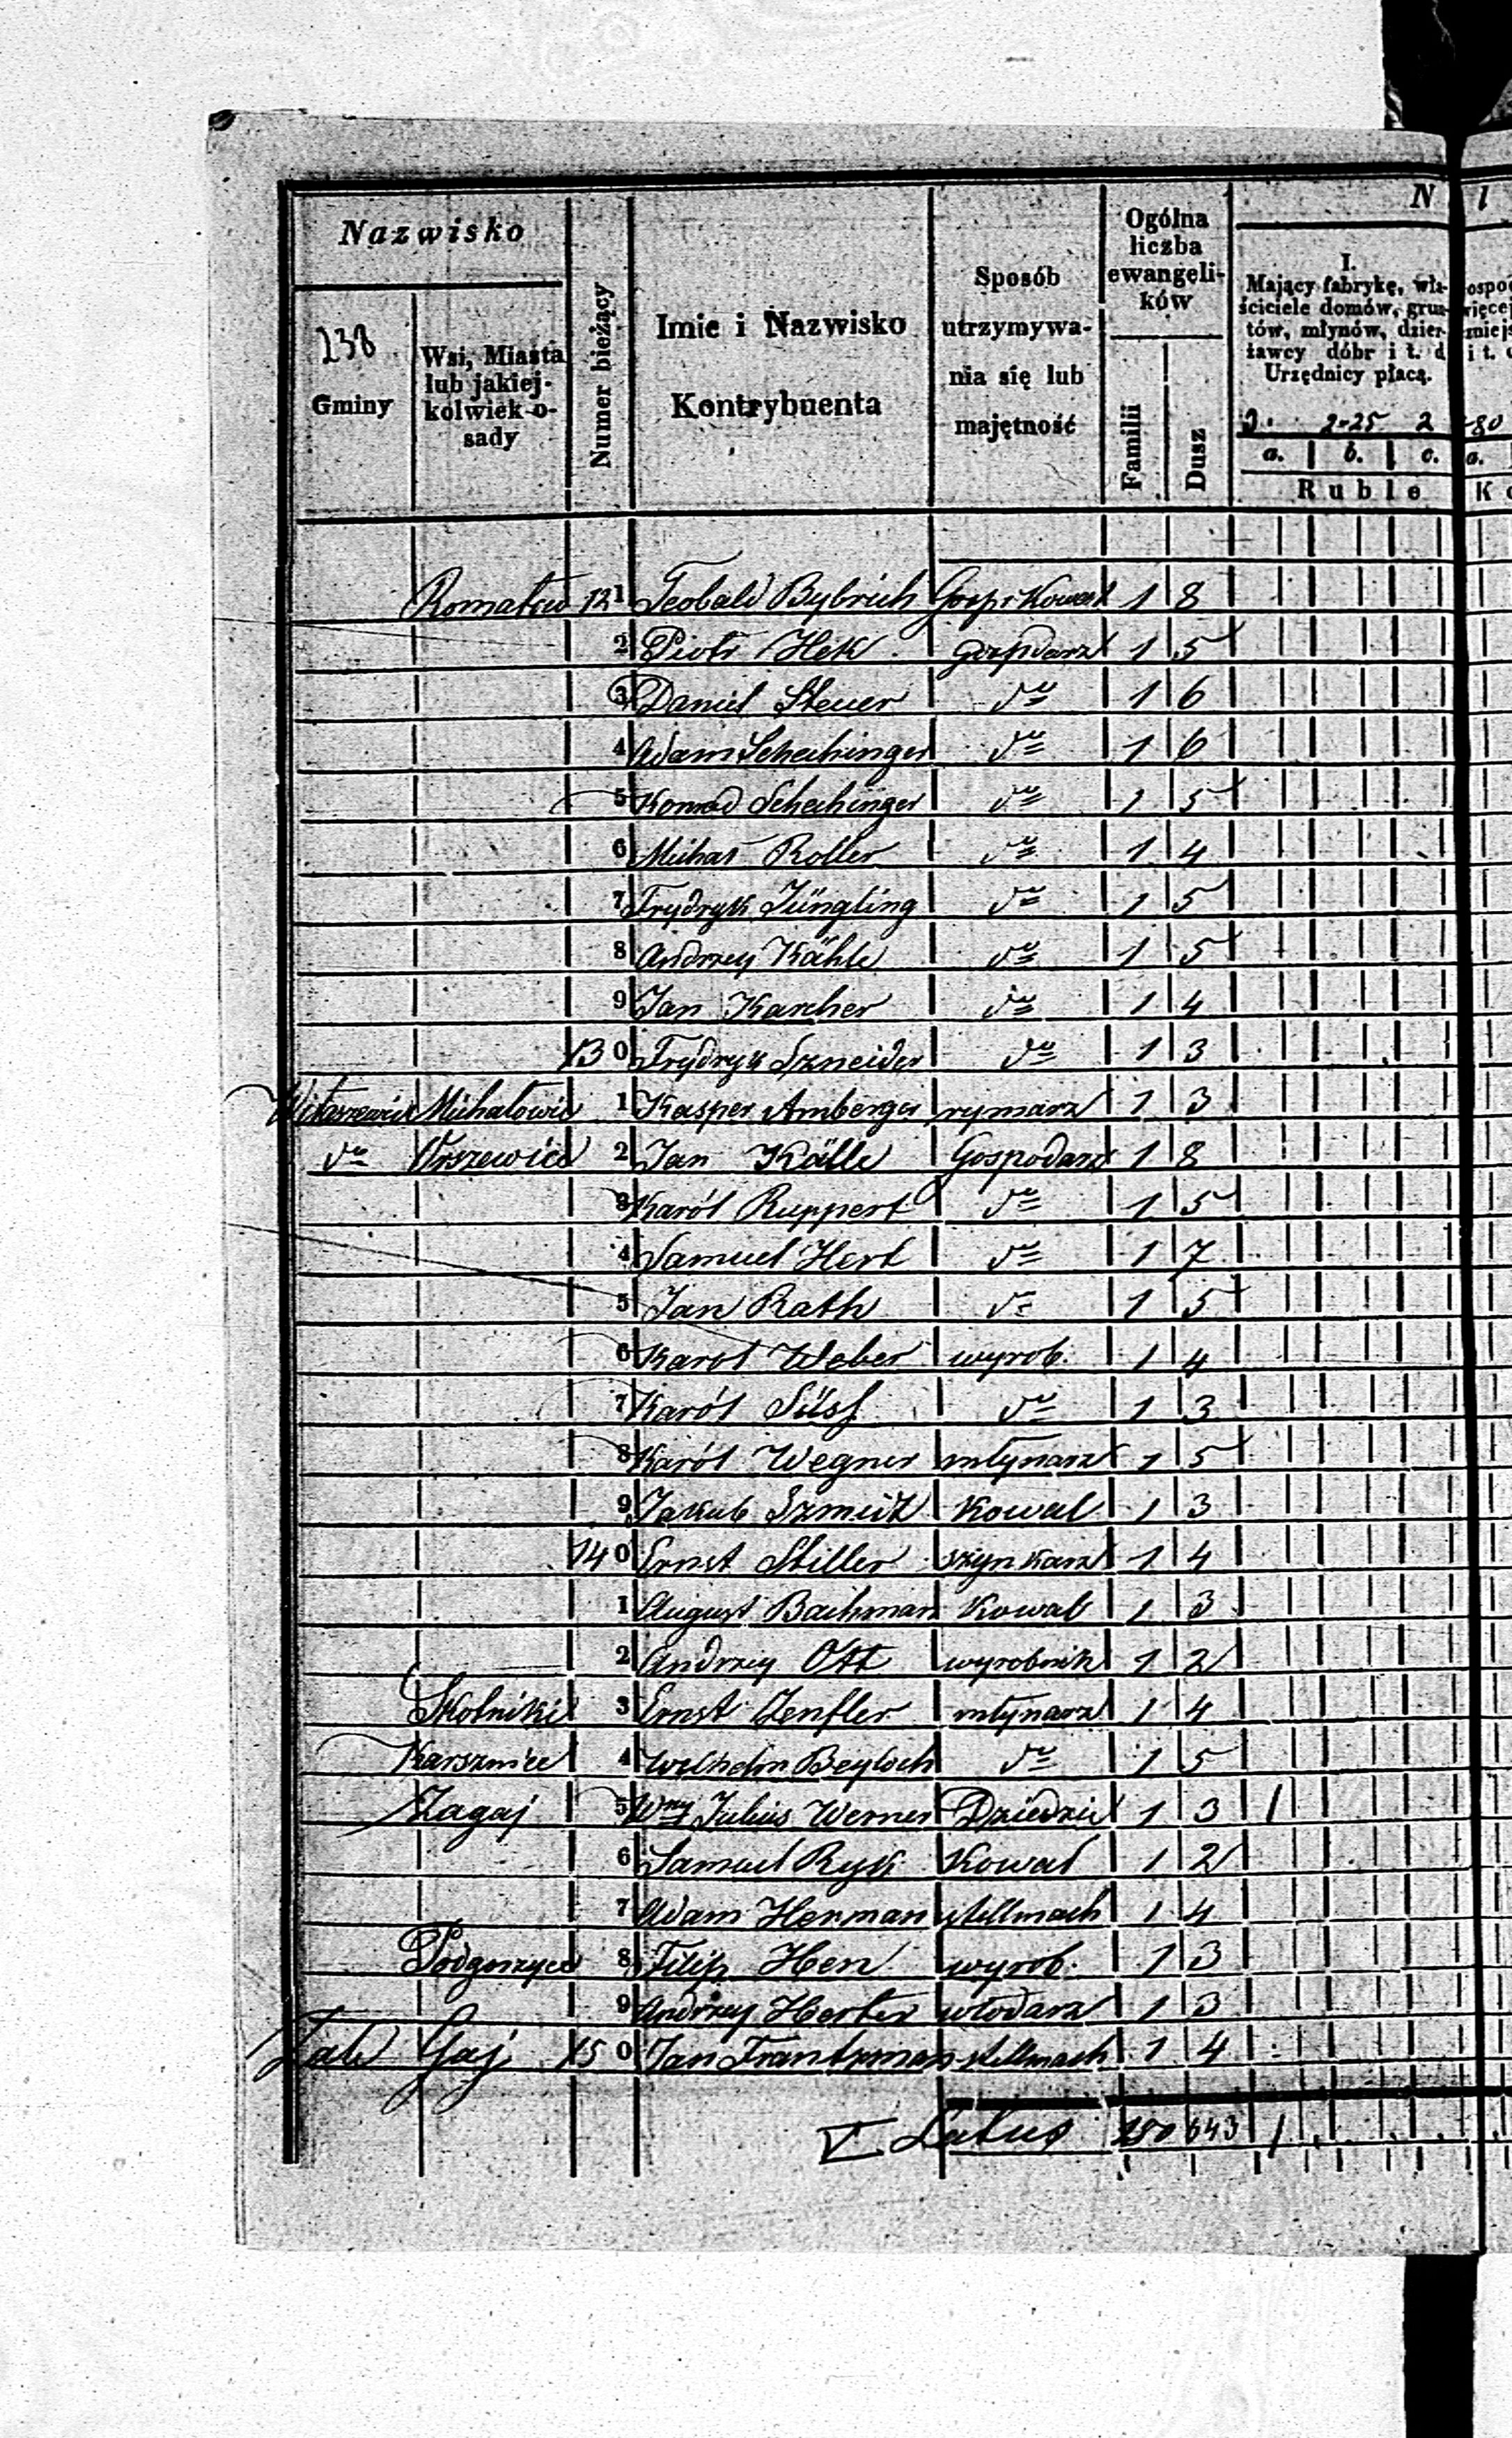 Nazwisko
238
Gminy
Wsi, Miasta
lub jakiej-
kolwiek o-
sady
Numer bieżący
Imie i Nazwisko
Kontrybuenta
Sposób
utrzymywa-
nia się lub
majętność
Ogólna
liczba
ewangeli-
ków
Familii
Dusz
N
I.
Mający fabrykę, wła-
ściciele domów, grun-
tów, młynów, dzier-
żawcy dóbr i t. d
Urzędnicy płacą.
3. 2-25 2
a. b. c.
Ruble
Romatów 12 1 Teobald Bybrich Gosp. i Kowal 1 8
2 Piotr Hek gospodarz 1 5
3 Daniel Steuer do 1 6
4 Adam Schechinger do 1 6
5 Konrad Schechinger do 1 5
6 Michał Roller do 1 4
7 Frydryk Jüngling do 1 5
8 Andrzey Kähle do 1 5
9 Jan Karcher do 1 4
13 0 Frydryk Szneider do 1 3
Witaszewice Michałowice 1 Kasper Amberger rymarz 1 3
do Orszewice 2 Jan Källe Gospodarz 1 8
3 Karól Ruppert do 1 5
4 Samuel Hert do 1 7
5 Jan Rath do 1 5
6 Karol Weber wyrob. 1 4
7 Karól Süss do 1 3
8 Karól Wegner młynarz 1 5
9 Jakub Szmidt Kowal 1 3
14 0 Ernst Stiller szynkarz 1 4
1 August Bachman Kowal 1 3
2 Andrzey Ott wyrobnik 1 2
Skotniki 3 Ernst Zenfler młynarz 1 4
Karsznice 4 Wilhelm Beyloch do 1 5
Zagaj 5 Wny Julius Werner Dziedzic 1 3 1
6 Samuel Ryk Kowal 1 2
7 Adam Herman stellmach 1 4
Podgorzyce 8 Filip Hen wyrob. 1 3
9 Andrzey Herter włodarz 1 3
Gaj 15 0 Jan Frantzman stellmach 1 4
Latus 150 643 1